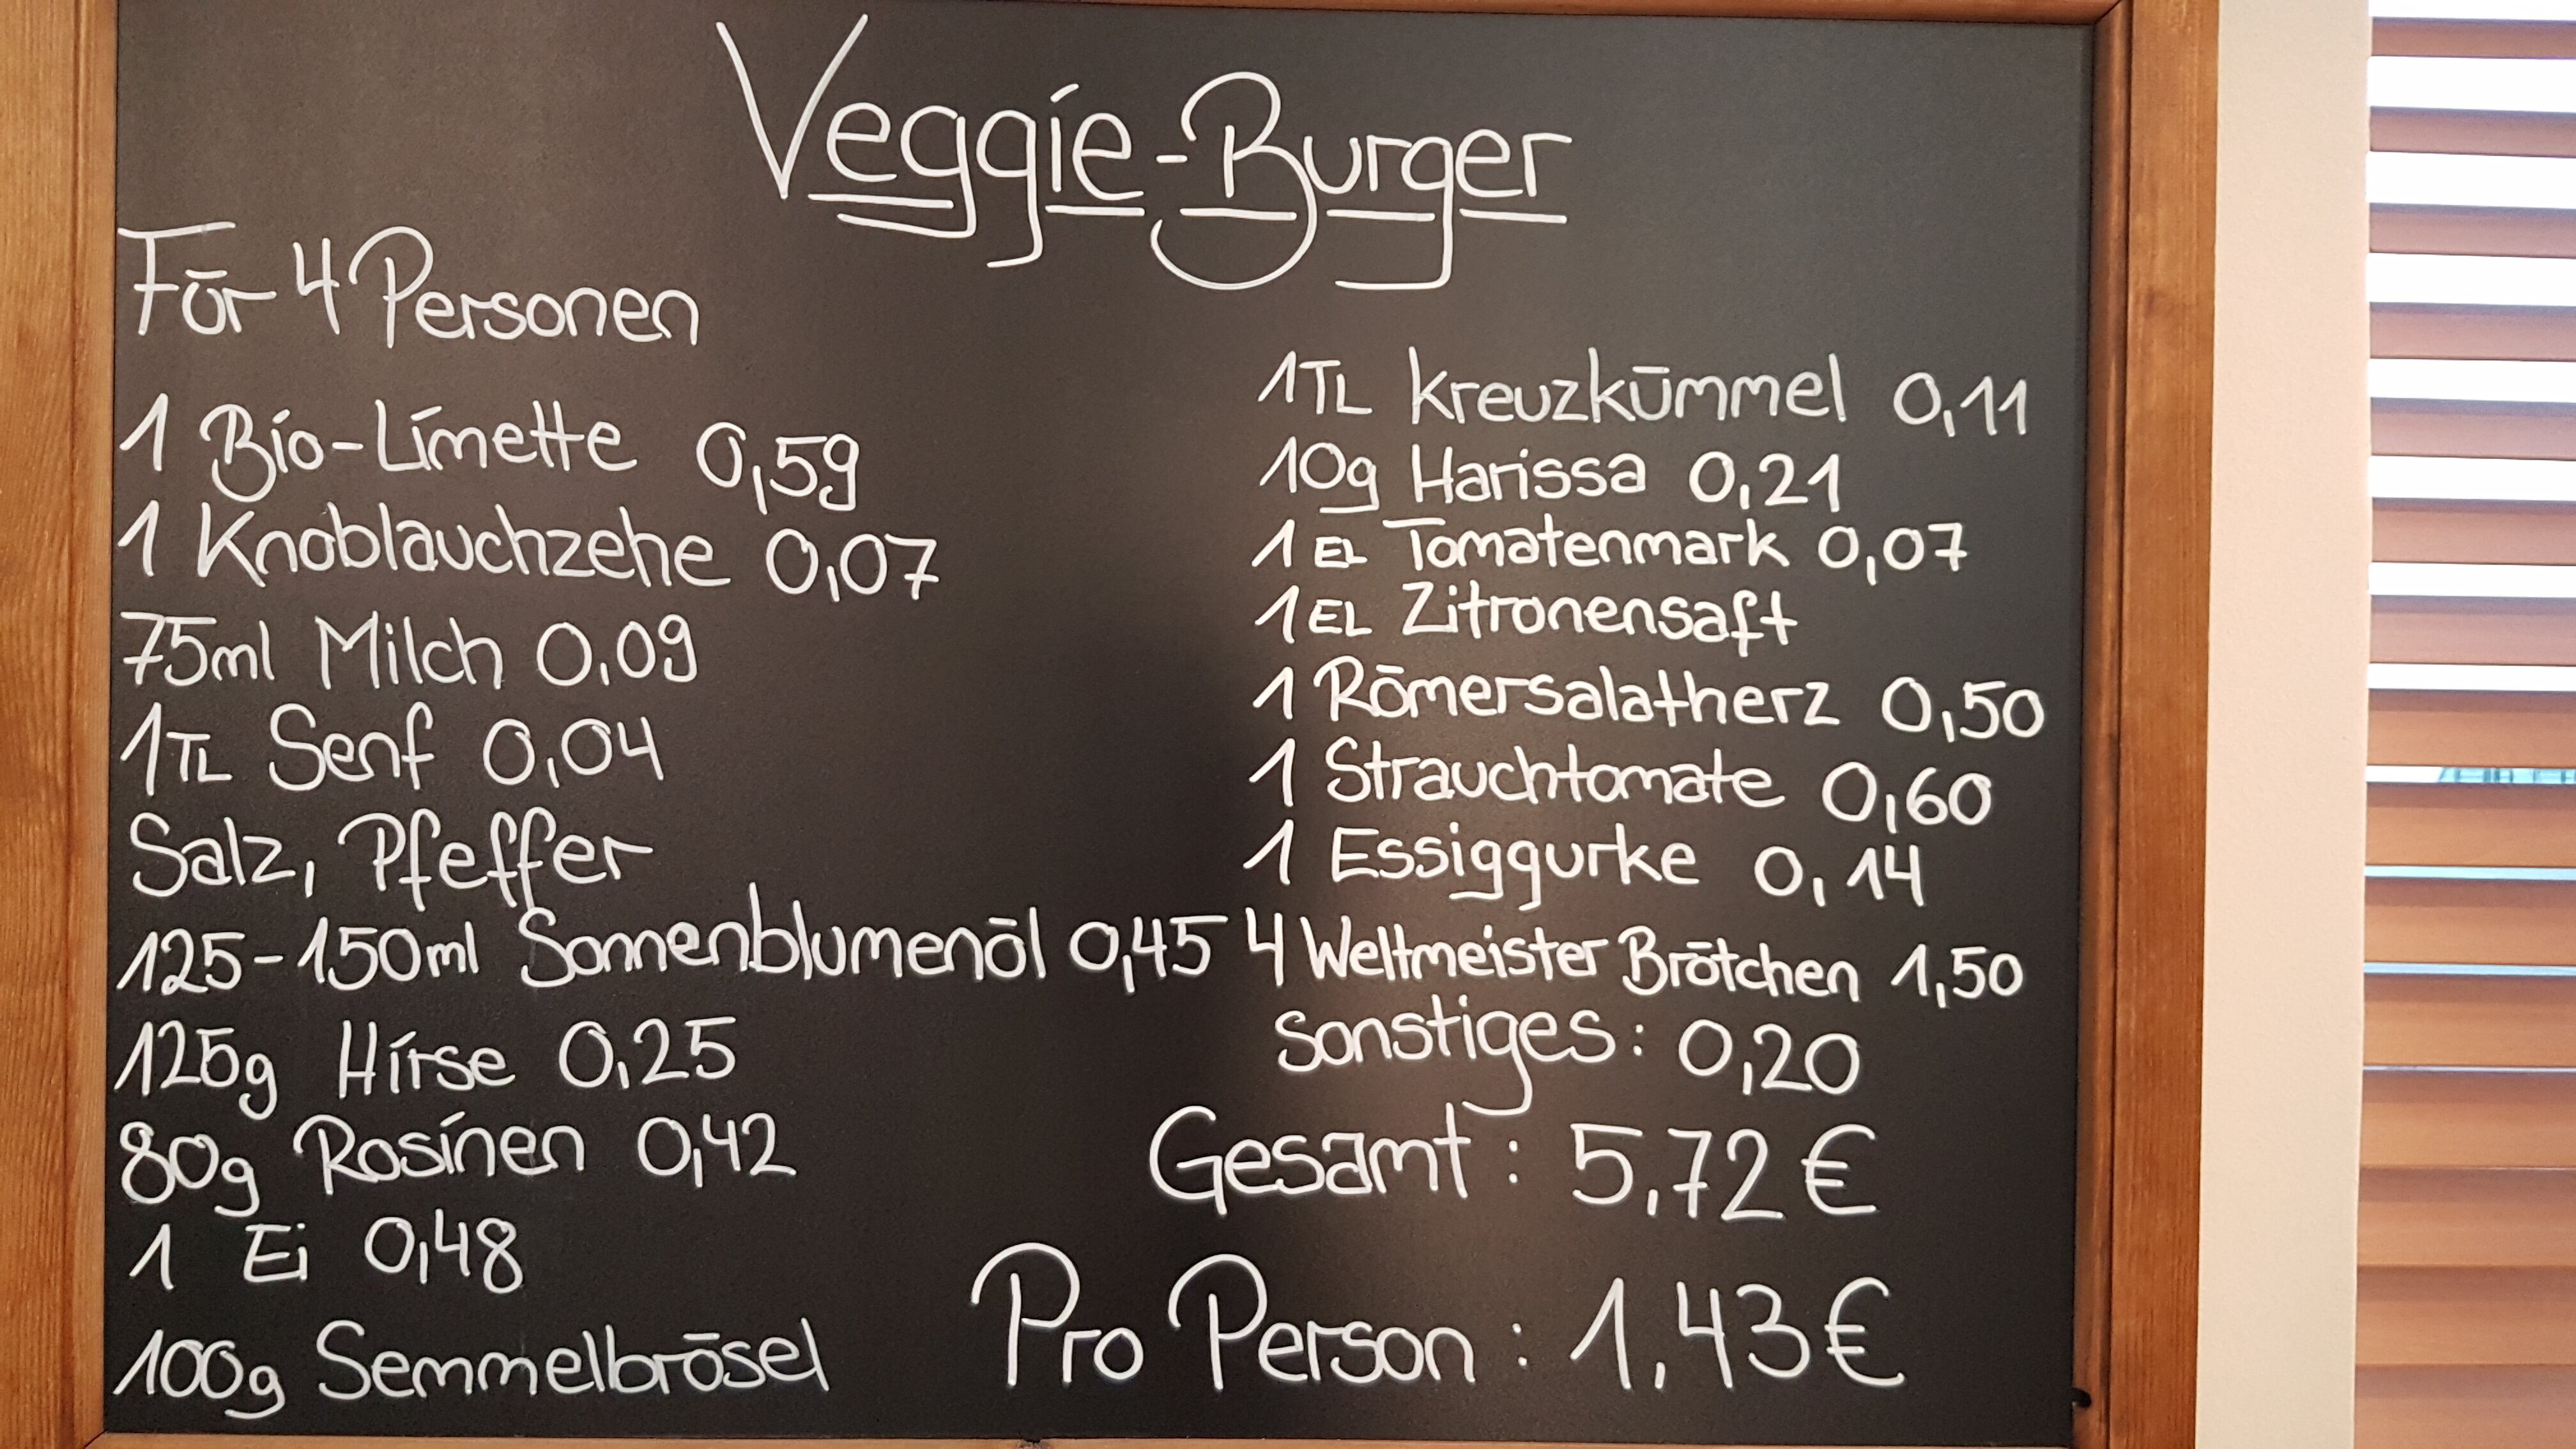 Veggie-Burger
Für 4 Personen
1 Bio-Limette 0,59
1 Knoblauchzehe 0,07
75ml Milch 0,09
1TL Senf 0,04
Salz, Pfeffer
125-150ml Sonnenblumenöl 0,45
125g Hirse 0,25
80g Rosinen 0,42
1 Ei 0,48
100g Semmelbrösel
1TL Kreuzkümmel 0,11
10g Harissa 0,21
1 EL Tomatenmark 0,07
1EL Zitronensaft
1 Römersalatherz 0,50
1 Strauchtomate 0,60
1 Essiggurke 0,14
4 Weltmeister Brötchen 1,50
Sonstiges: 0,20
Gesamt: 5,72€
Pro Person: 1,43€